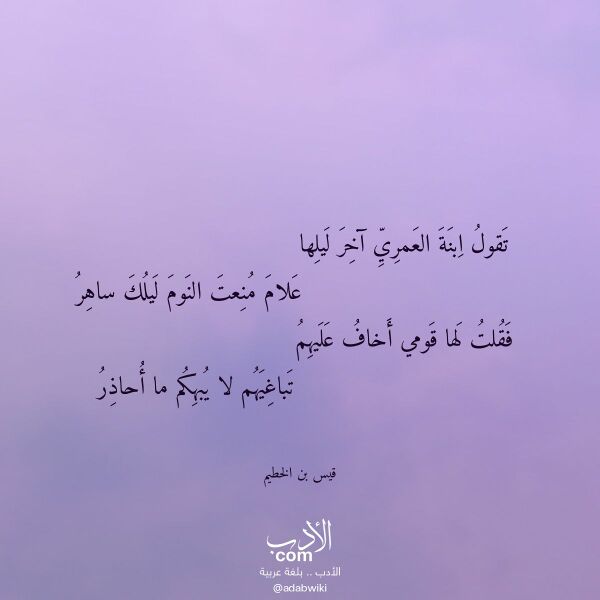 تَقولُ اِبنَةَ العَمرِيِّ آخِرَ لَيلِها
عَلامَ مُنِعتَ النَومَ لَيلُكَ ساهِرُ
فَقُلتُ لَها قَومي أَخافُ عَلَيهِمُ
تَباغِيَهُم لا يُبهِكُم ما أُحاذِرُ
قيس بن الخطيم
الأدب
com
الأدب .. بلغة عربية
@adabwiki